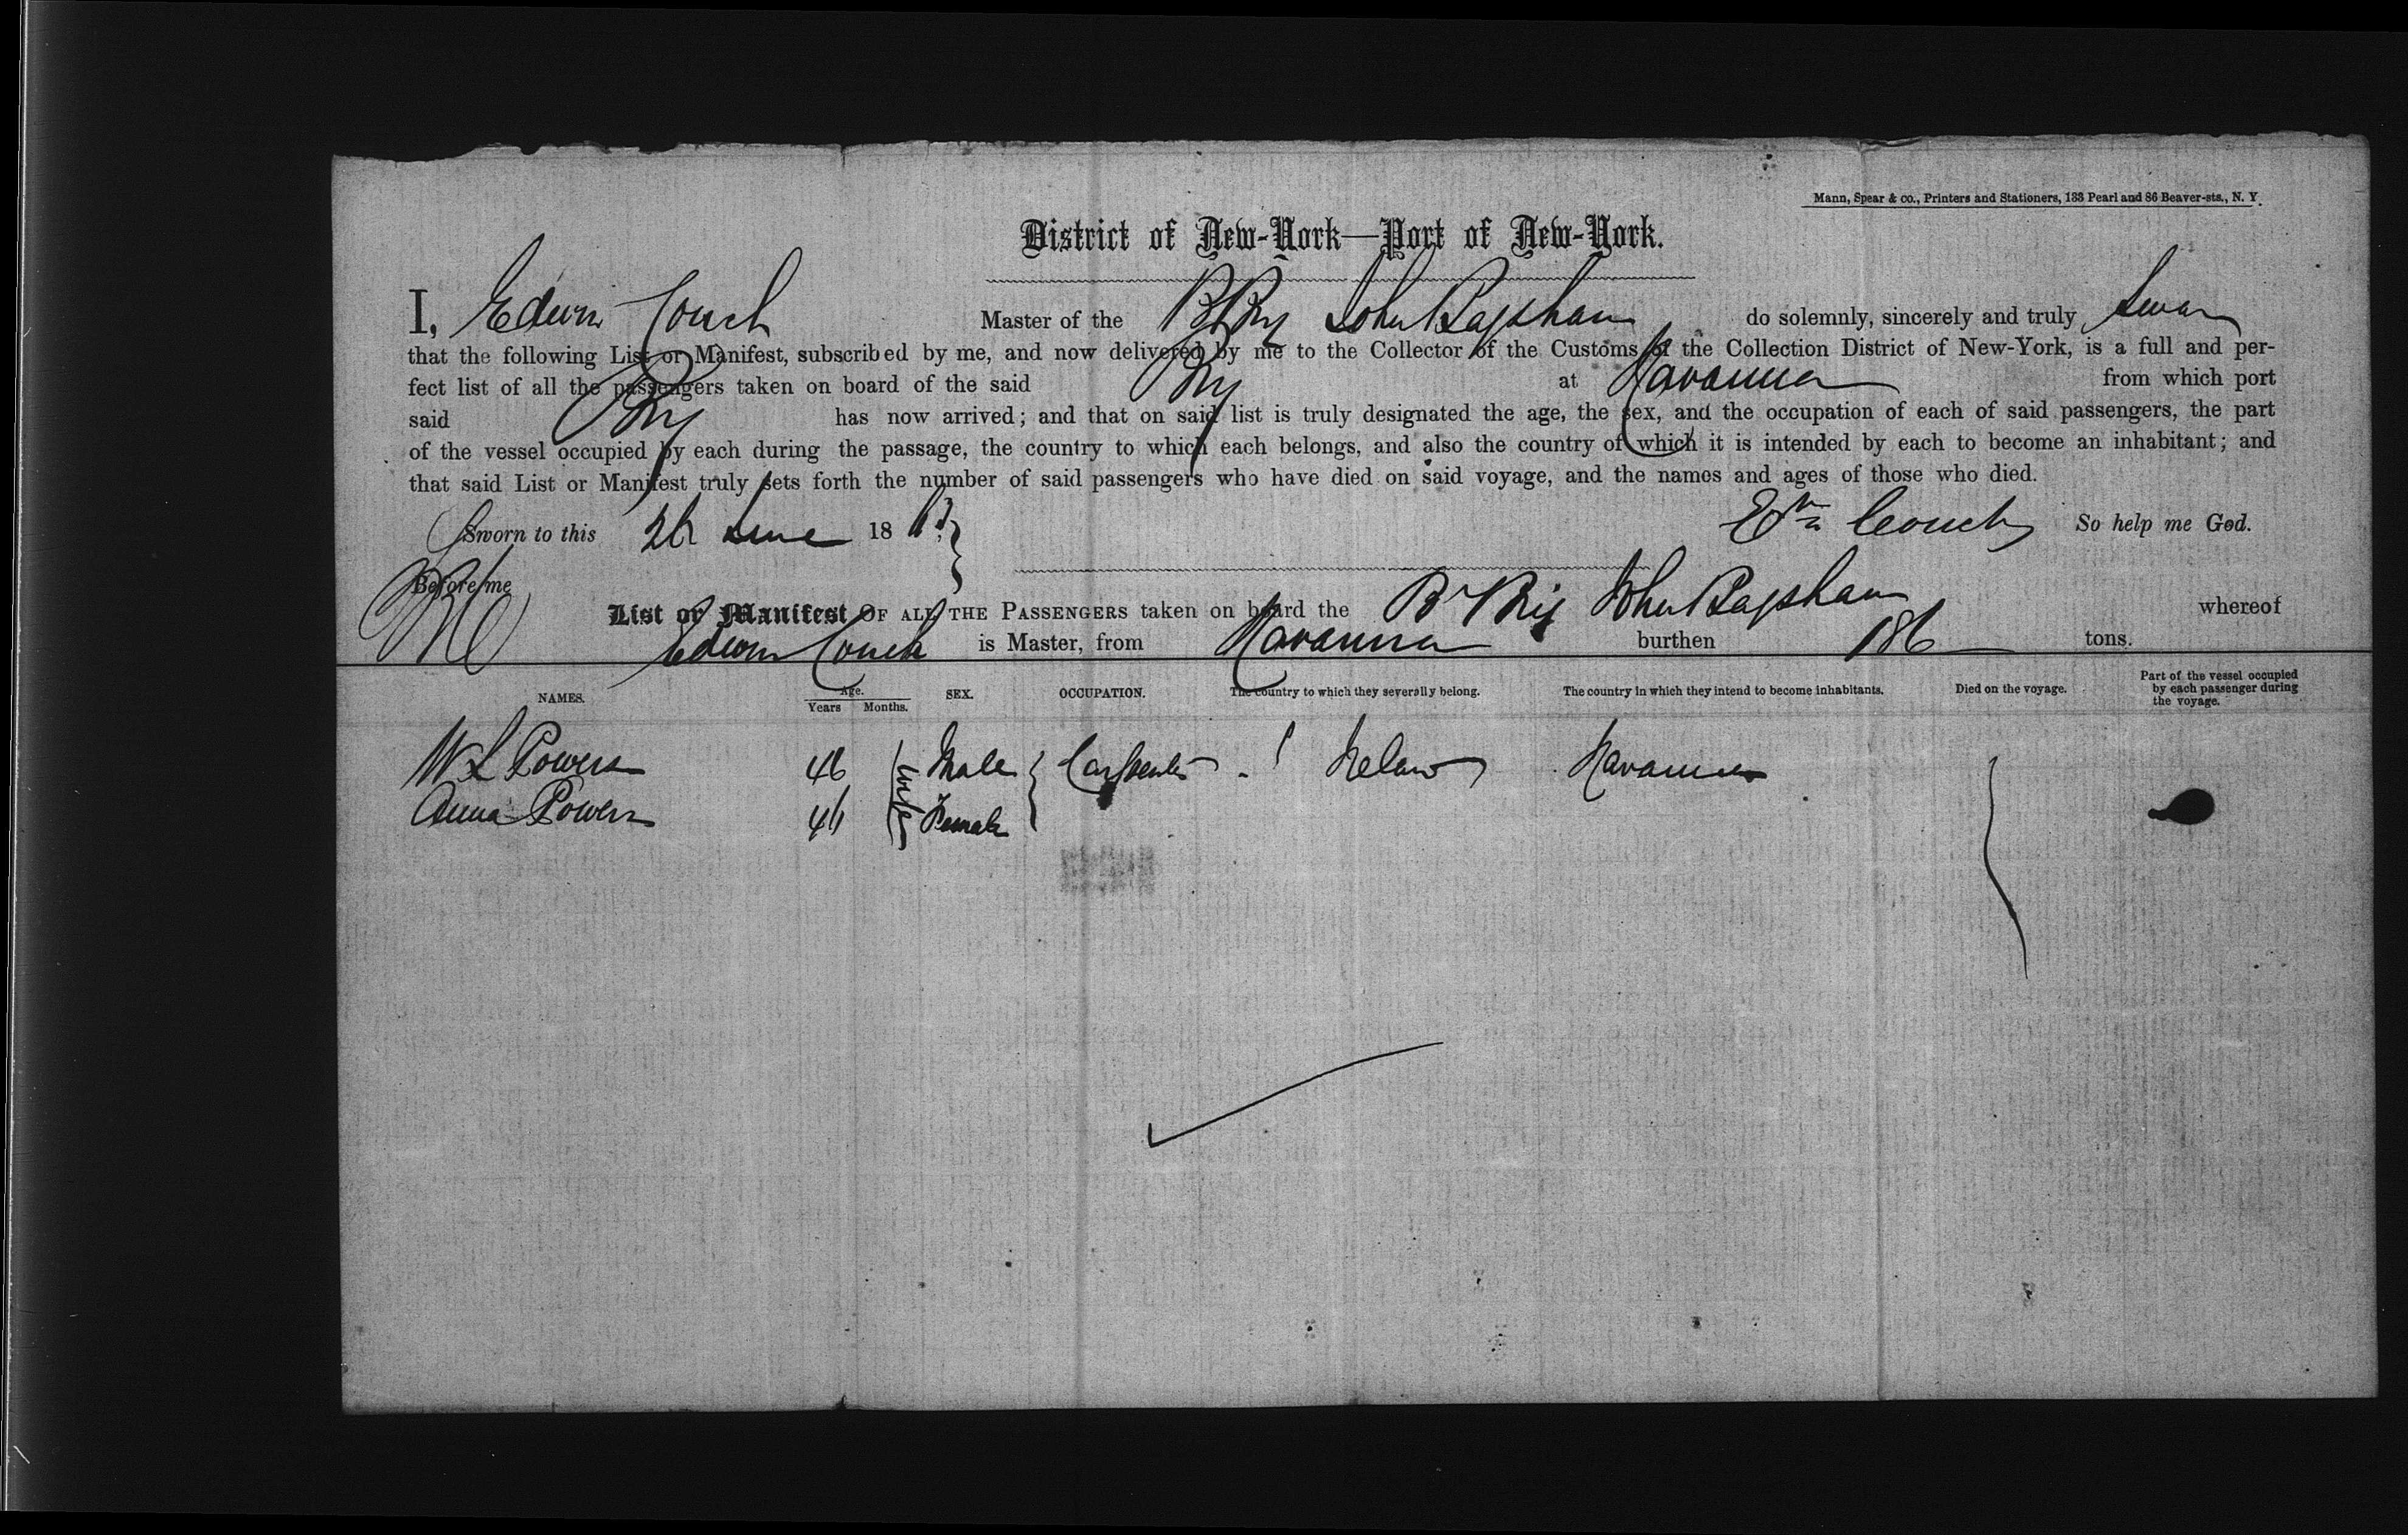 Mann, Spear & co., Printers and Stationers, 133 Pearl and 86 Beaver-sts., N. Y.
District of New-York—Port of New-York.
I, Edwin Couch Master of the Br Brig John do solemnly, sincerely and truly Swear
that the following List or Manifest, subscribed by me, and now delivered by me to the Collector of the Customs of the Collection District of New-York, is a full and per-
fect list of all the passengers taken on board of the said Brig at Havanna from which port
said Brig has now arrived; and that on said list is truly designated the age, the sex, and the occupation of each of said passengers, the part
of the vessel occupied by each during the passage, the country to which each belongs, and also the country of which it is intended by each to become an inhabitant; and
that said List or Manifest truly sets forth the number of said passengers who have died on said voyage, and the names and ages of those who died.
Sworn to this June 18 Couch So help me God.
Before me
List or Manifest OF ALL THE PASSENGERS taken on board the Br Brig John whereof
Edwin Couch is Master, from Havanna burthen 186 tons.
NAMES. Age. Years Months. SEX. OCCUPATION. The country to which they severally belong. The country in which they intend to become inhabitants. Died on the voyage. Part of the vessel occupied by each passenger during the voyage.
W L Powers 46 Male Carpenter Havanna
Anna Powers 46 wife Female